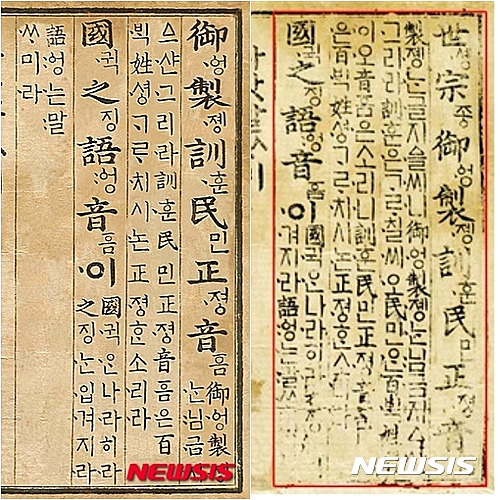 御엉製졩訓훈民민正졍音음
御엉製
ᄂᆞᆫ님금
스샨그리라訓훈民민正졍音음은百
ᄇᆡᆨ姓셩ᄀᆞᄅᆞ치시논正졍ᄒᆞᆫ소리라
國귁之징語엉音음이
國귁ᄋᆞᆫ나라히라
之징ᄂᆞᆫ입겨지라
語엉는말
ᄊᆞ미라
NEWSIS
世솅宗종御엉製졩訓훈民민正졍音
製졩ᄂᆞᆫ글지슬씨니御엉製졩ᄂᆞᆫ님금지
그리라訓훈은ᄀᆞᄅᆞ칠씨오民민은百ᄇᆡᆨ姓
이오音음은소리니訓훈民민正졍音음
은百ᄇᆡᆨ姓셩ᄀᆞᄅᆞ치시논正졍ᄒᆞᆫ
國귁之징語엉音음이
國귁ᄋᆞᆫ나라히
겨지라語엉는
NEWSIS